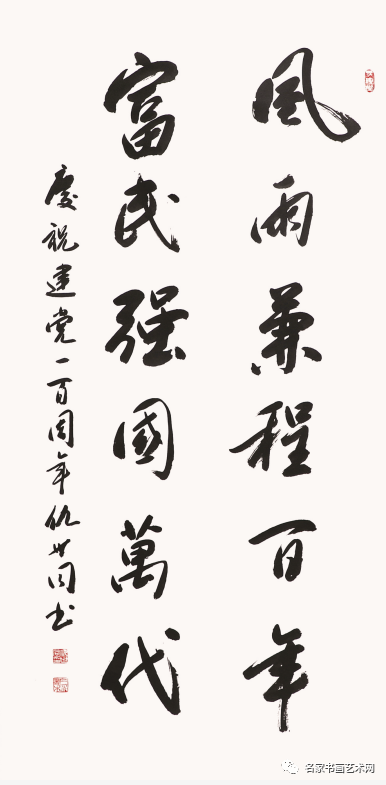 風雨兼程百年
富民强國萬代
慶祝建党一百周年仇世同书
名家书画艺术网